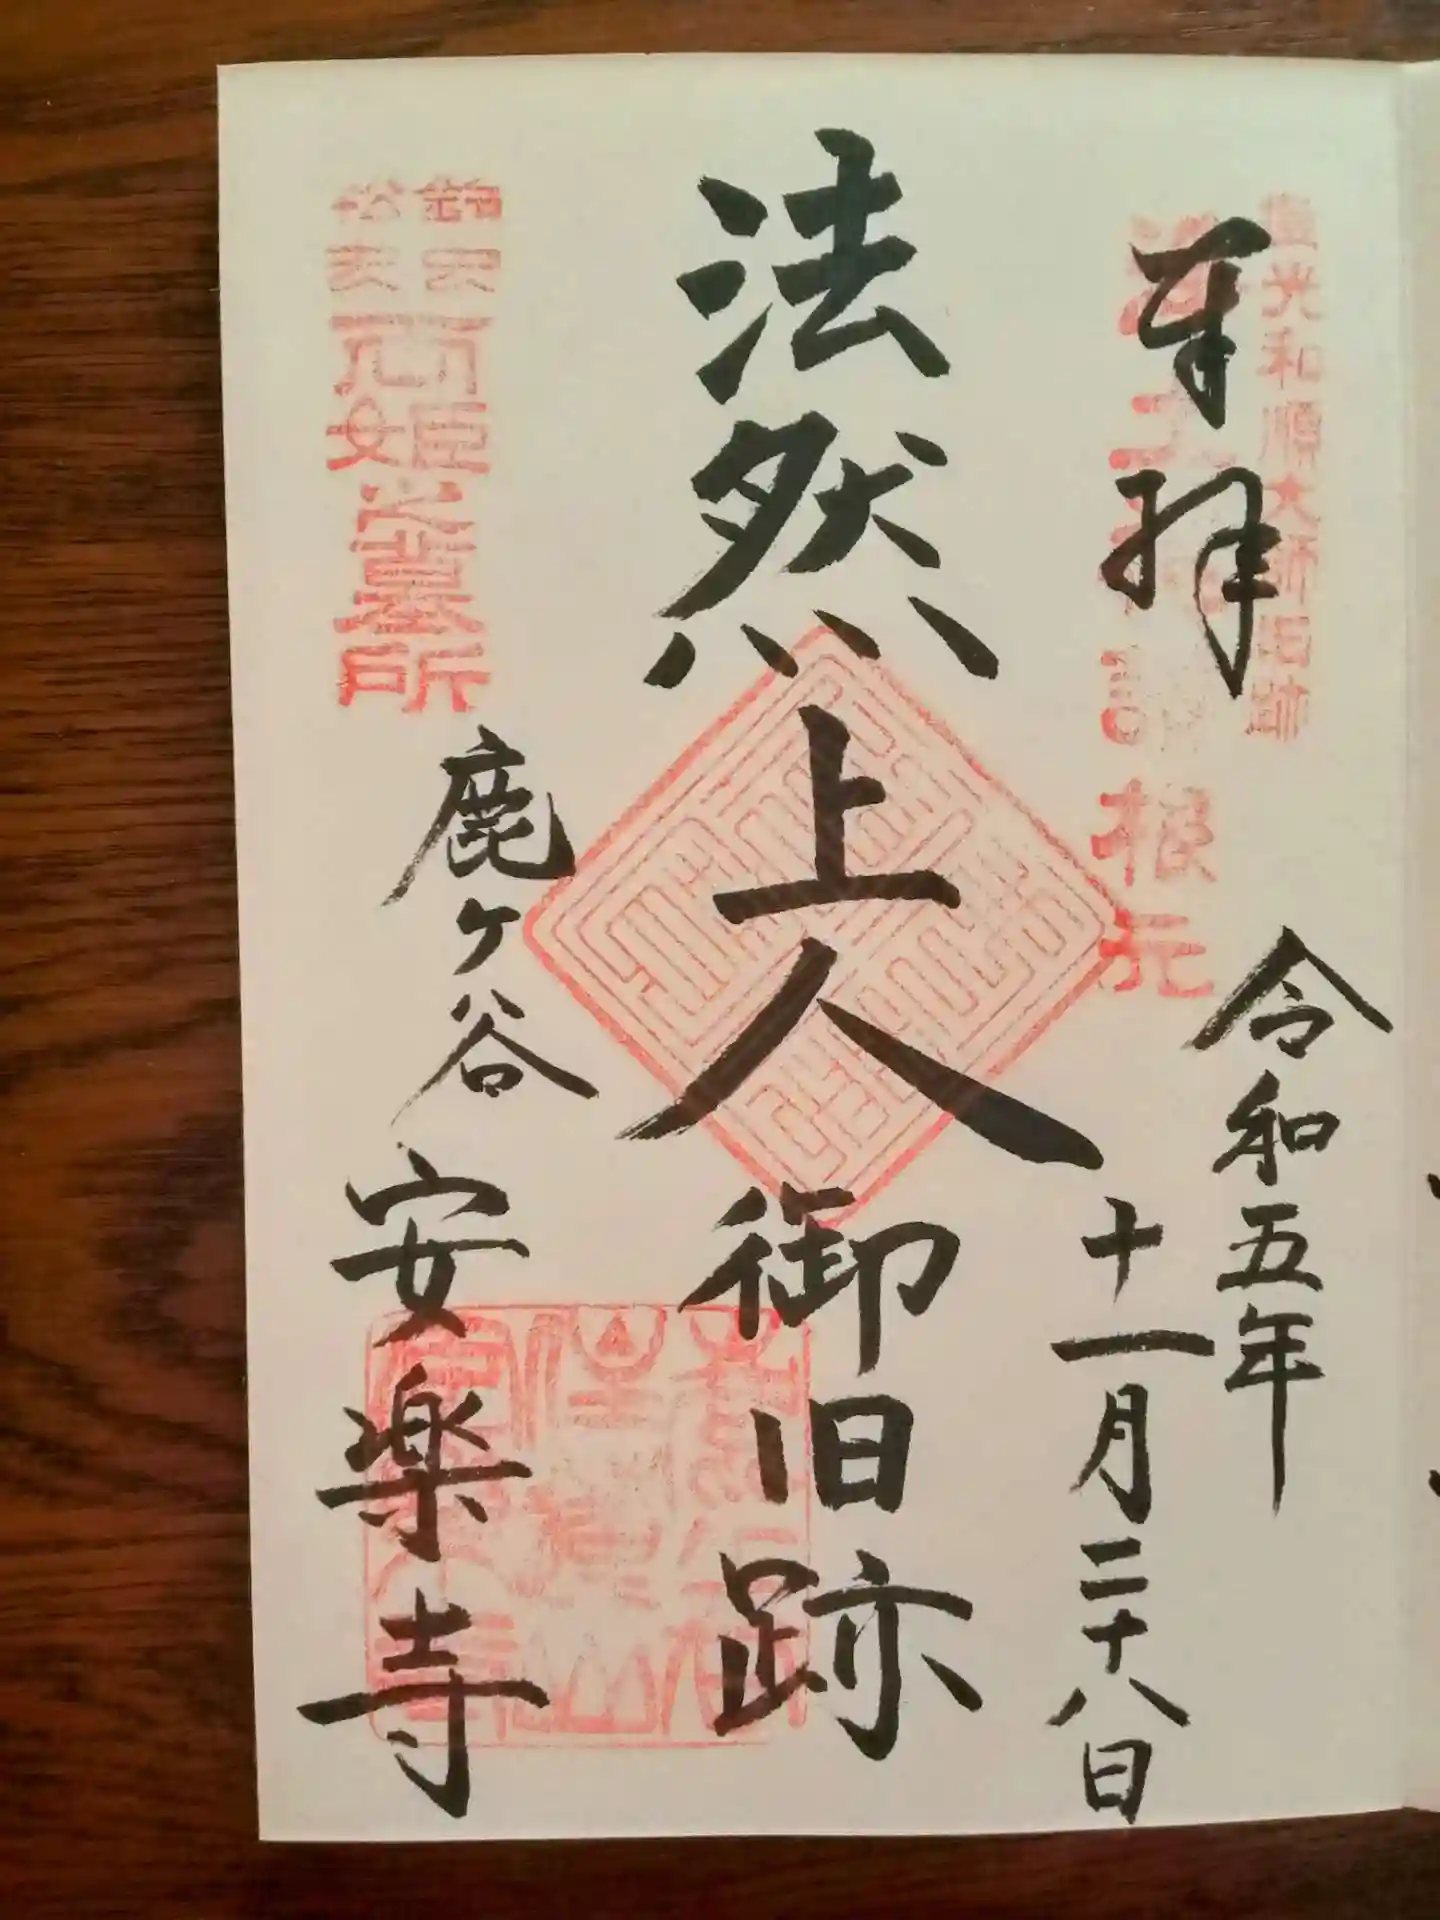 圓光和順大師旧跡
奉拝
根元
令和五年
十一月二十八日
法然上人
御旧跡
鈴虫
松虫
両姫之墓所
鹿ヶ谷
安楽寺